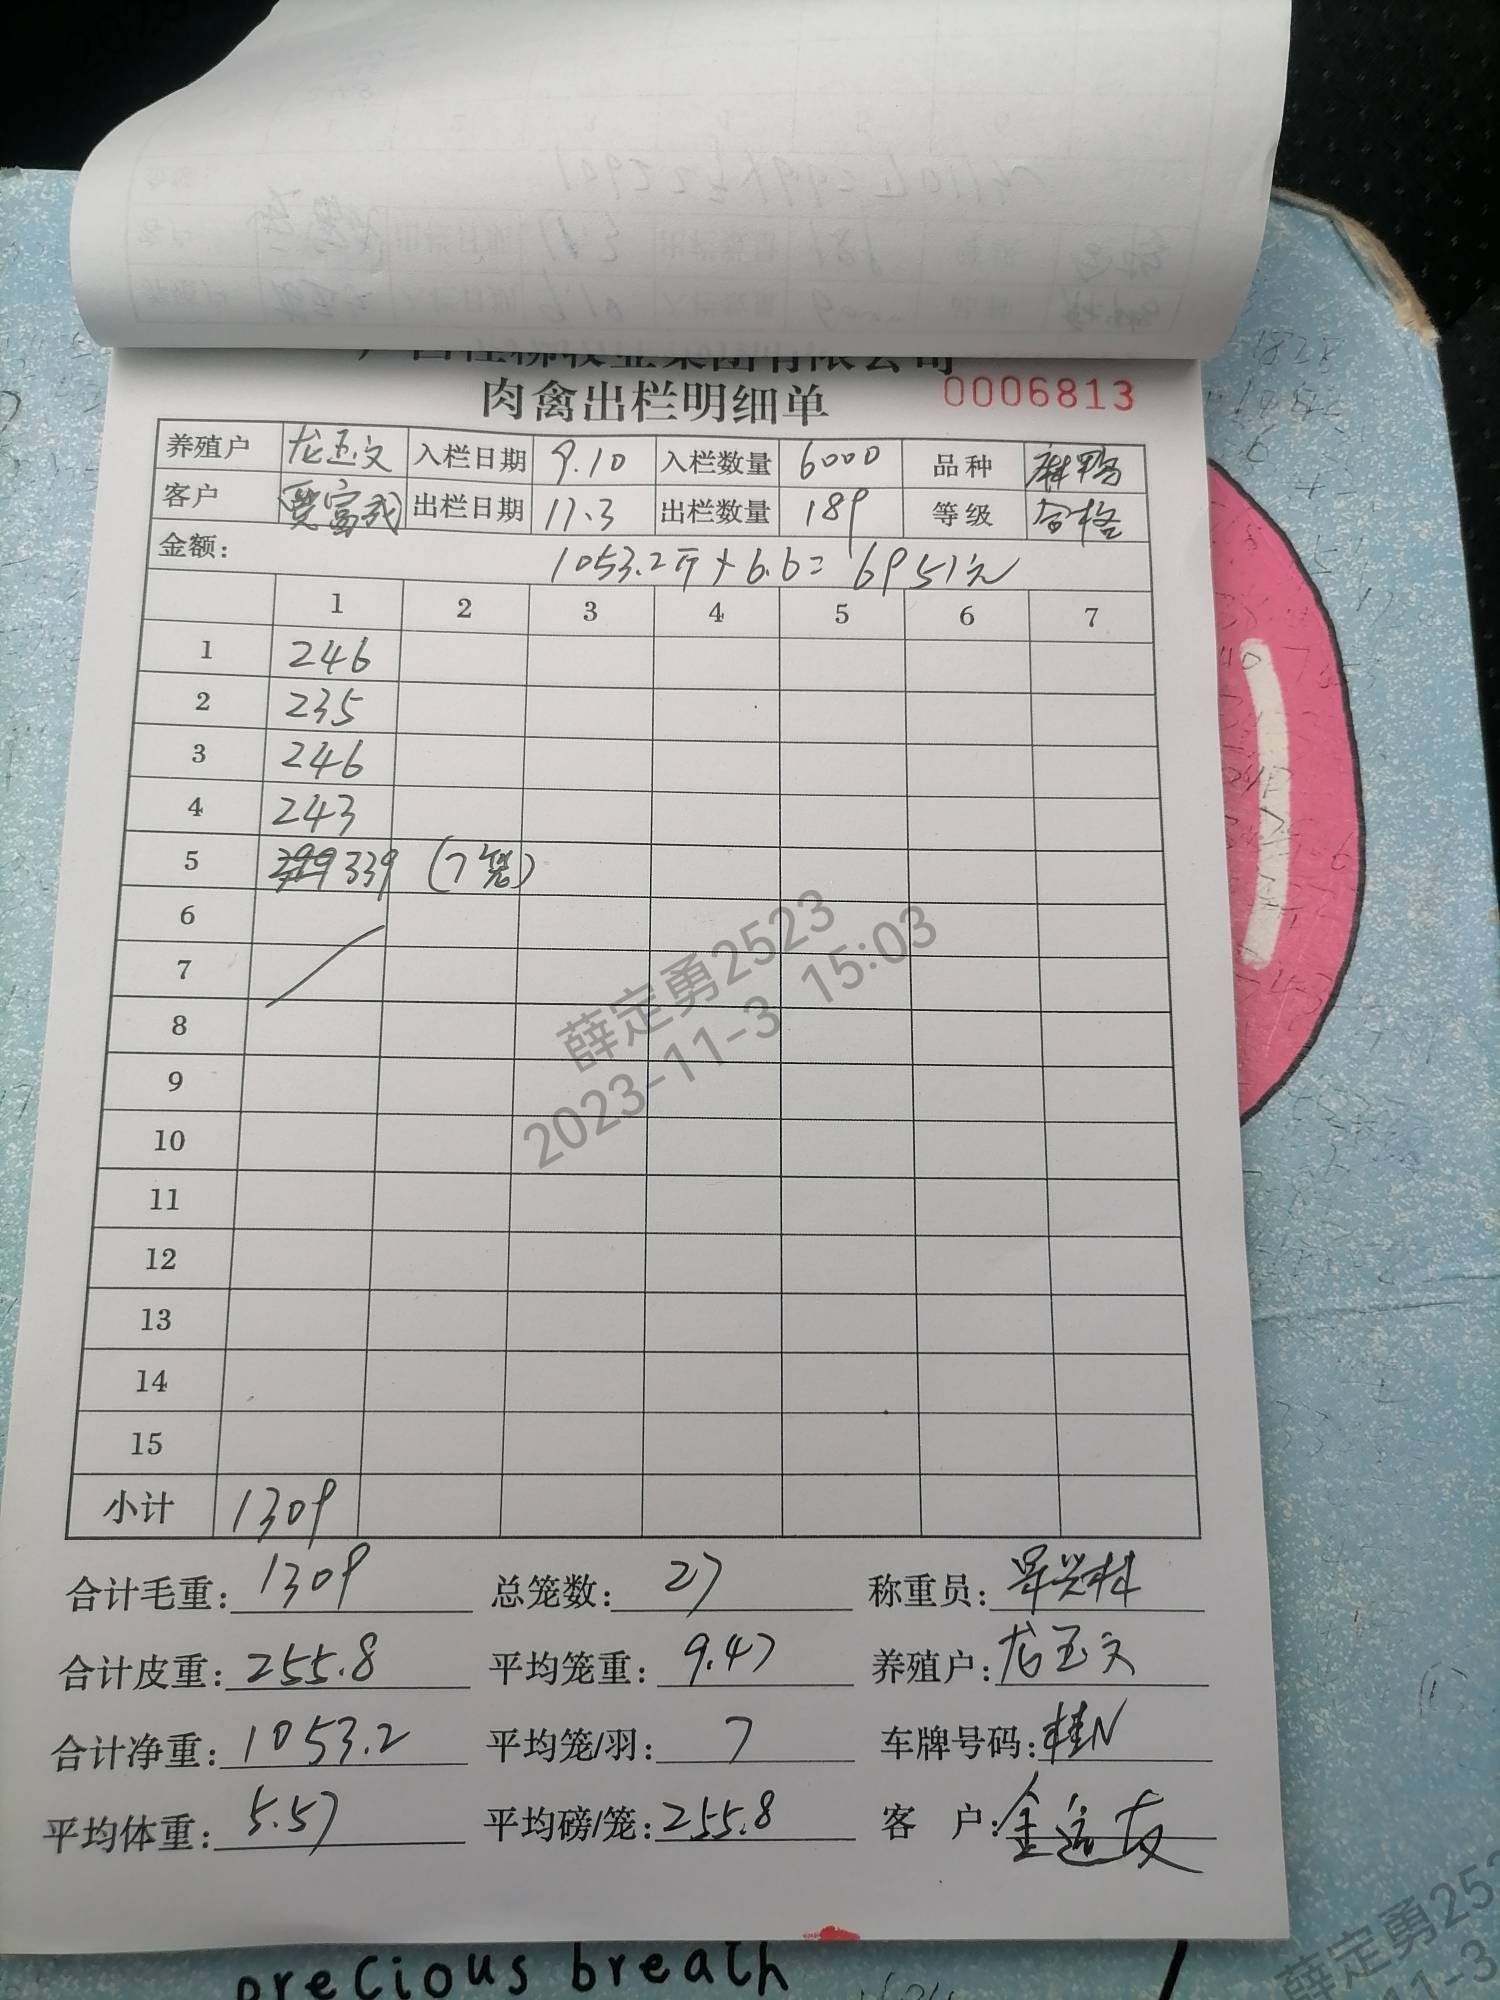 广西桂柳牧业集团有限公司
肉禽出栏明细单 0006813
养殖户 龙玉文 入栏日期 9.10 入栏数量 6000 品种 麻鸭
客户 贾富成 出栏日期 11.3 出栏数量 189 等级 合格
金额: 1053.2斤×6.6=6951元
1 2 3 4 5 6 7
1 246
2 235
3 246
4 243
5 339 (7笼)
6
7
8
9
10
11
12
13
14
15
小计 1309
合计毛重: 1309 总笼数: 27 称重员:
合计皮重: 255.8 平均笼重: 9.47 养殖户: 龙玉文
合计净重: 1053.2 平均笼/羽: 7 车牌号码: 桂N
平均体重: 5.57 平均磅/笼: 255.8 客 户:
薛定勇2523
2023-11-3 15:03
precious breath